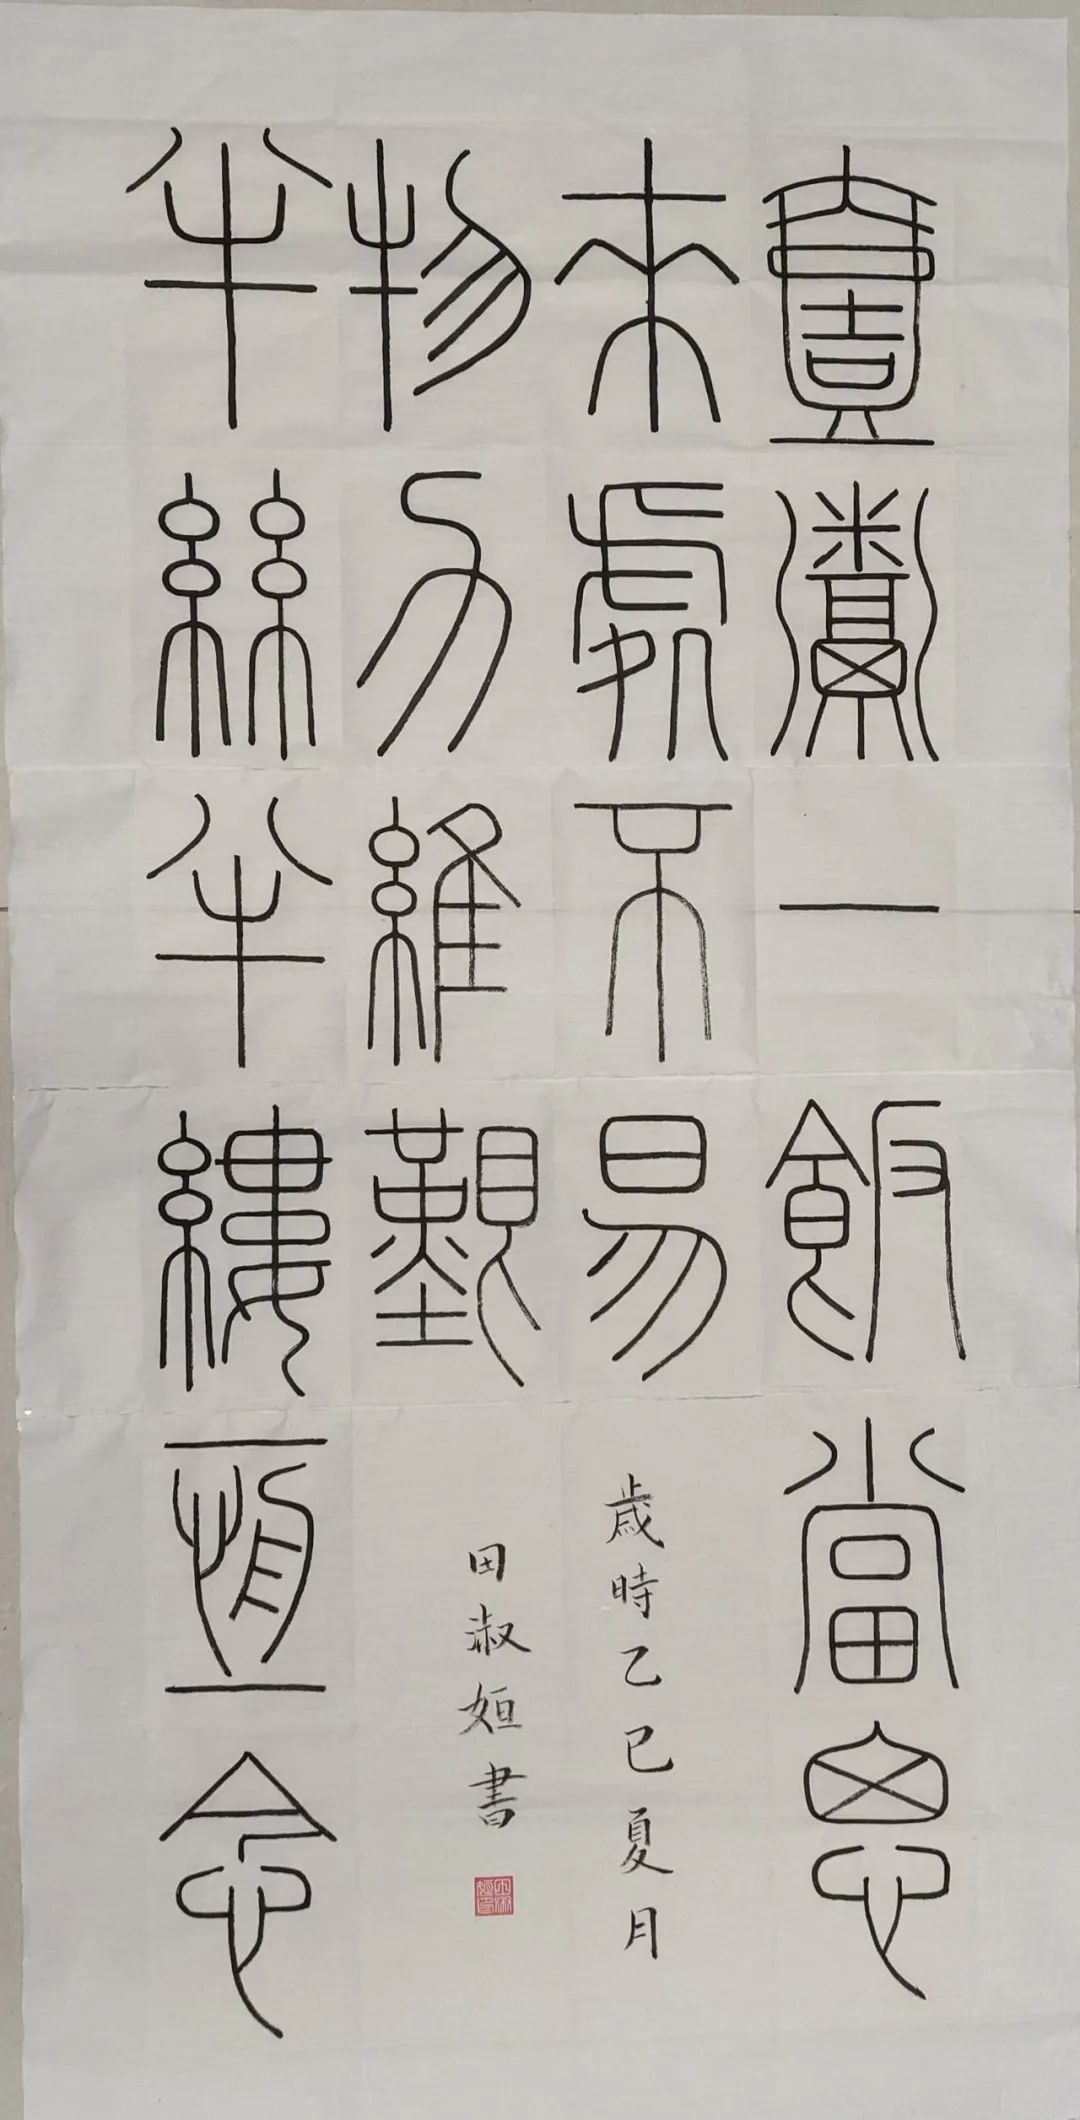 壹粥一飯當思
來處不易
半絲半縷恆念
物力維艱
歲時乙巳夏月
田淑姮書